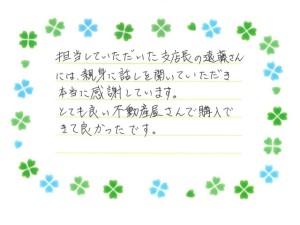 担当していただいた支店長の遠藤さん
には、親身に話しを聞いていただき
本当に感謝しています。
とても良い不動産屋さんで購入で
きて良かったです。